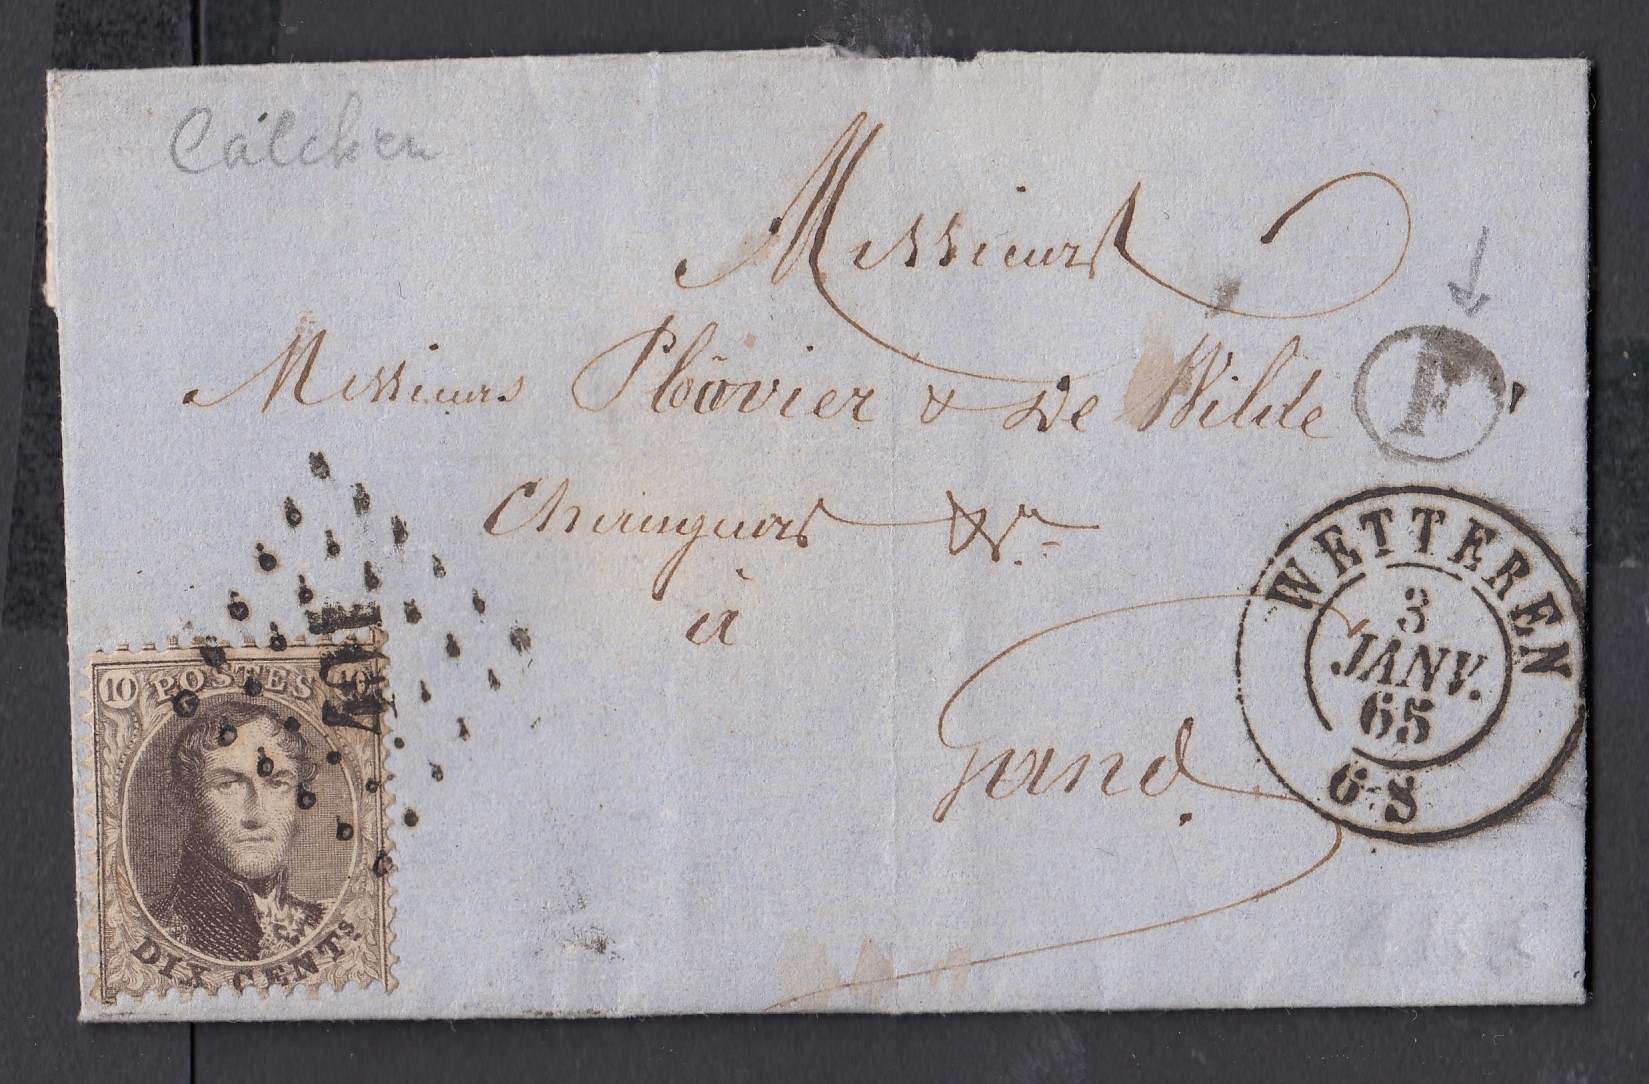 Cálcken
Messieurs
Messieurs Ploüvier & De Wilde
F
à
Gand
WETTEREN
3
JANV.
65
6-8
10 POSTES 10
DIX CENTS